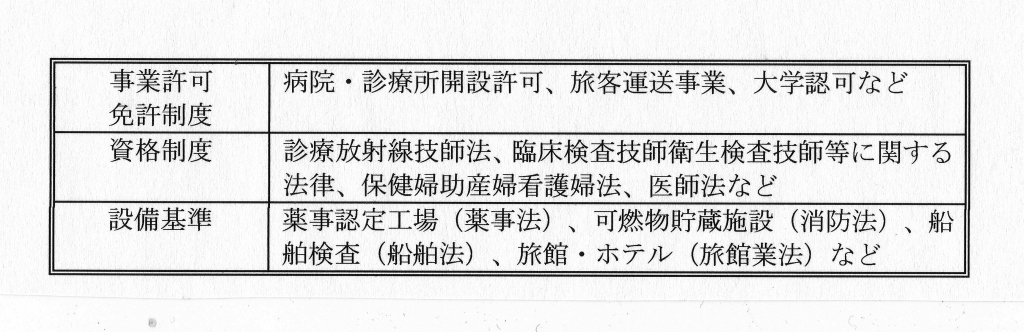 事業許可
免許制度
病院・診療所開設許可、旅客運送事業、大学認可など
資格制度
診療放射線技師法、臨床検査技師衛生検査技師等に関する
法律、保健婦助産婦看護婦法、医師法など
設備基準
薬事認定工場（薬事法）、可燃物貯蔵施設（消防法）、船
舶検査（船舶法）、旅館・ホテル（旅館業法）など